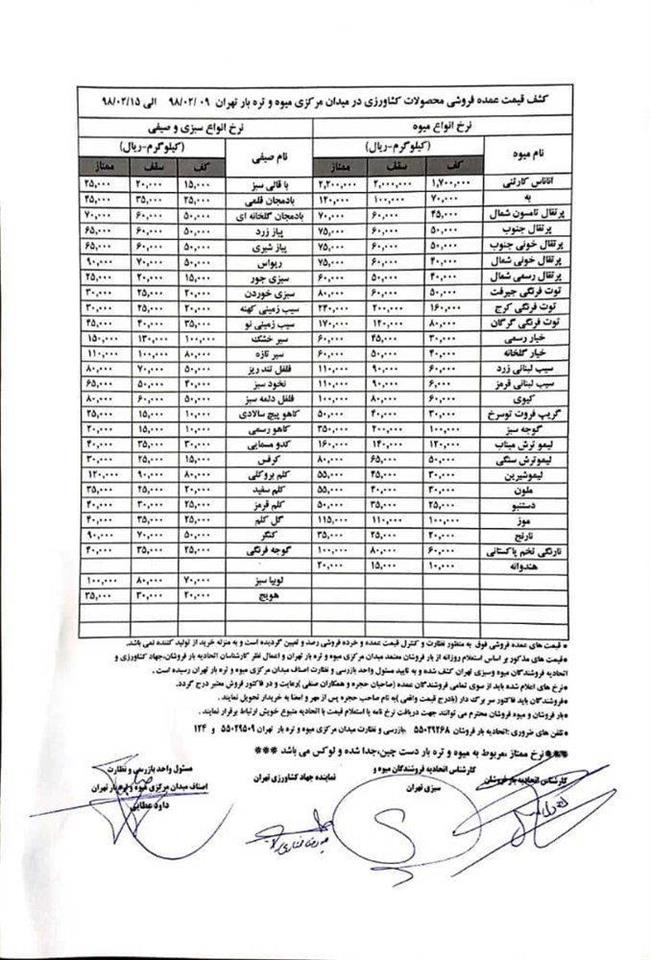 کشف قیمت عمده فروشی محصولات کشاورزی در میدان مرکزی میوه و تره بار تهران ۹۸/۰۲/۰۹ الی ۹۸/۰۲/۱۵
نرخ انواع میوه نرخ انواع سبزی و صیفی
نام میوه (کیلوگرم-ریال) نام صیفی (کیلوگرم-ریال)
کف سقف ممتاز کف سقف ممتاز
آناناس کارتنی ۱,۷۰۰,۰۰۰ ۲,۰۰۰,۰۰۰ ۲,۲۰۰,۰۰۰ باقالی سبز ۱۵,۰۰۰ ۲۰,۰۰۰ ۲۵,۰۰۰
به ۷۰,۰۰۰ ۱۰۰,۰۰۰ ۱۲۰,۰۰۰ بادمجان قلمی ۲۵,۰۰۰ ۳۵,۰۰۰ ۴۵,۰۰۰
پرتقال تامسون شمال ۴۵,۰۰۰ ۶۰,۰۰۰ ۷۰,۰۰۰ بادمجان گلخانه ای ۵۰,۰۰۰ ۶۰,۰۰۰ ۷۰,۰۰۰
پرتقال جنوب ۵۰,۰۰۰ ۶۰,۰۰۰ ۷۵,۰۰۰ پیاز زرد ۵۰,۰۰۰ ۶۰,۰۰۰ ۶۵,۰۰۰
پرتقال خونی جنوب ۵۰,۰۰۰ ۶۰,۰۰۰ ۷۵,۰۰۰ پیاز شیری ۵۰,۰۰۰ ۶۰,۰۰۰ ۶۵,۰۰۰
پرتقال خونی شمال ۴۰,۰۰۰ ۵۰,۰۰۰ ۷۵,۰۰۰ ریواس ۵۰,۰۰۰ ۷۰,۰۰۰ ۹۰,۰۰۰
پرتقال رسمی شمال ۴۰,۰۰۰ ۵۰,۰۰۰ ۶۰,۰۰۰ سبزی جور ۱۵,۰۰۰ ۲۰,۰۰۰ ۲۵,۰۰۰
توت فرنگی جیرفت ۵۰,۰۰۰ ۶۰,۰۰۰ ۸۰,۰۰۰ سبزی خوردن ۲۰,۰۰۰ ۲۵,۰۰۰ ۳۰,۰۰۰
توت فرنگی کرج ۱۶۰,۰۰۰ ۲۰۰,۰۰۰ ۲۴۰,۰۰۰ سیب زمینی کهنه ۲۰,۰۰۰ ۲۵,۰۰۰ ۳۰,۰۰۰
توت فرنگی گرگان ۸۰,۰۰۰ ۱۴۰,۰۰۰ ۱۷۰,۰۰۰ سیب زمینی نو ۳۵,۰۰۰ ۴۰,۰۰۰ ۴۵,۰۰۰
خیار رسمی ۳۰,۰۰۰ ۴۵,۰۰۰ ۶۰,۰۰۰ سیر خشک ۱۰۰,۰۰۰ ۱۳۰,۰۰۰ ۱۵۰,۰۰۰
خیار گلخانه ۴۰,۰۰۰ ۵۰,۰۰۰ ۶۰,۰۰۰ سیر تازه ۸۰,۰۰۰ ۱۰۰,۰۰۰ ۱۱۰,۰۰۰
سیب لبنانی زرد ۶۰,۰۰۰ ۹۰,۰۰۰ ۱۱۰,۰۰۰ فلفل تند ریز ۵۰,۰۰۰ ۷۰,۰۰۰ ۸۰,۰۰۰
سیب لبنانی قرمز ۶,۰۰۰ ۹۰,۰۰۰ ۱۱۰,۰۰۰ نخود سبز ۴۰,۰۰۰ ۵۰,۰۰۰ ۶۵,۰۰۰
کیوی ۶۰,۰۰۰ ۸۰,۰۰۰ ۱۰۰,۰۰۰ فلفل دلمه سبز ۵۰,۰۰۰ ۶۰,۰۰۰ ۸۰,۰۰۰
گریپ فروت توسرخ ۳۰,۰۰۰ ۴۰,۰۰۰ ۵۰,۰۰۰ کاهو پیچ سالادی ۱۰,۰۰۰ ۱۵,۰۰۰ ۲۵,۰۰۰
گوجه سبز ۱۰۰,۰۰۰ ۲۰۰,۰۰۰ ۳۵۰,۰۰۰ کاهو رسمی ۱۰,۰۰۰ ۱۵,۰۰۰ ۲۰,۰۰۰
لیمو ترش میناب ۱۲۰,۰۰۰ ۱۴۰,۰۰۰ ۱۶۰,۰۰۰ کدو مسمایی ۳۰,۰۰۰ ۳۵,۰۰۰ ۴۰,۰۰۰
لیموترش سنگی ۵۰,۰۰۰ ۶۵,۰۰۰ ۸۰,۰۰۰ کرفس ۱۵,۰۰۰ ۲۵,۰۰۰ ۳۰,۰۰۰
لیموشیرین ۳۰,۰۰۰ ۴۵,۰۰۰ ۵۵,۰۰۰ کلم بروکلی ۸۰,۰۰۰ ۹۰,۰۰۰ ۱۲۰,۰۰۰
ملون ۳۰,۰۰۰ ۴۰,۰۰۰ ۵۵,۰۰۰ کلم سفید ۲۰,۰۰۰ ۲۵,۰۰۰ ۳۵,۰۰۰
دستنبو ۲۵,۰۰۰ ۳۵,۰۰۰ ۵۰,۰۰۰ کلم قرمز ۲۵,۰۰۰ ۳۰,۰۰۰ ۴۰,۰۰۰
موز ۱۰۰,۰۰۰ ۱۱۰,۰۰۰ ۱۱۵,۰۰۰ گل کلم ۲۵,۰۰۰ ۳۵,۰۰۰ ۴۰,۰۰۰
نارنج ۲۰,۰۰۰ ۲۵,۰۰۰ ۳۵,۰۰۰ کنگر ۵۰,۰۰۰ ۷۰,۰۰۰ ۹۰,۰۰۰
نارنگی تخم پاکستانی ۶۰,۰۰۰ ۸۰,۰۰۰ ۱۰۰,۰۰۰ گوجه فرنگی ۲۵,۰۰۰ ۳۵,۰۰۰ ۴۰,۰۰۰
هندوانه ۱۰,۰۰۰ ۱۵,۰۰۰ ۲۰,۰۰۰
لوبیا سبز ۷۰,۰۰۰ ۸۰,۰۰۰ ۱۰۰,۰۰۰
هویج ۲۰,۰۰۰ ۳۰,۰۰۰ ۳۵,۰۰۰
* قیمت های عمده فروشی فوق به منظور نظارت و کنترل قیمت عمده و خرده فروشی رصد و تعیین گردیده است و به منزله خرید از تولید کننده نمی باشد.
* قیمت های مذکور بر اساس استعلام روزانه از بار فروشان معتمد میدان مرکزی میوه و تره بار تهران و اعمال نظر کارشناسان اتحادیه بار فروشان،جهاد کشاورزی و
اتحادیه فروشندگان میوه وسبزی تهران کشف شده و با تایید مسئول واحد بازرسی و نظارت اصناف میدان مرکزی میوه و تره بار تهران رسیده است .
* نرخ های اعلام شده باید از سوی تمامی فروشندگان عمده (صاحبان حجره و همکاران صنفی )رعایت و در فاکتور فروش معتبر درج گردد.
* فروشندگان باید فاکتور سر برگ دار (بادرج قیمت واقعی )به نام صاحب حجره پس از مهر و امضا به خریدار تحویل نمایند .
* بار فروشان و میوه فروشان محترم می توانند جهت دریافت نرخ نامه یا استعلام قیمت با اتحادیه متبوع خویش ارتباط برقرار نمایند .
* تلفن های ضروری :اتحادیه بار فروشان ۵۵۰۲۹۲۶۸ ،بازرسی و نظارت میدان مرکزی میوه و تره بار تهران ۵۵۰۲۹۵۰۹ و ۱۲۴
*** نرخ ممتاز ،مربوط به میوه و تره بار دست چین،جدا شده و لوکس می باشد ***
کارشناس اتحادیه بار فروشان
کارشناس اتحادیه فروشندگان میوه و
سبزی تهران
نماینده جهاد کشاورزی تهران
مسئول واحد بازرسی و نظارت
اصناف میدان مرکزی میوه و تره بار تهران
داود عطایی